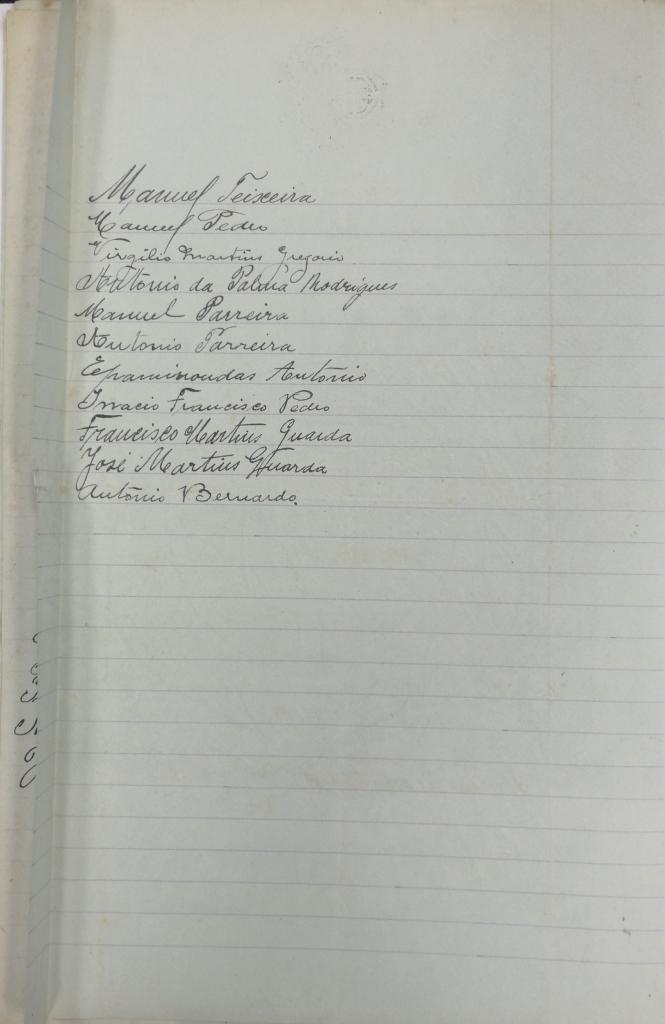 Manuel Teixeira
Manuel Pedro
Virgilio Martins Gregorio
António da Palma Rodrigues
Manuel Parreira
Antonio Parreira
Epaminondas António
Inacio Francisco Pedro
Francisco Martins Guarda
José Martins Guarda
António Bernardo.